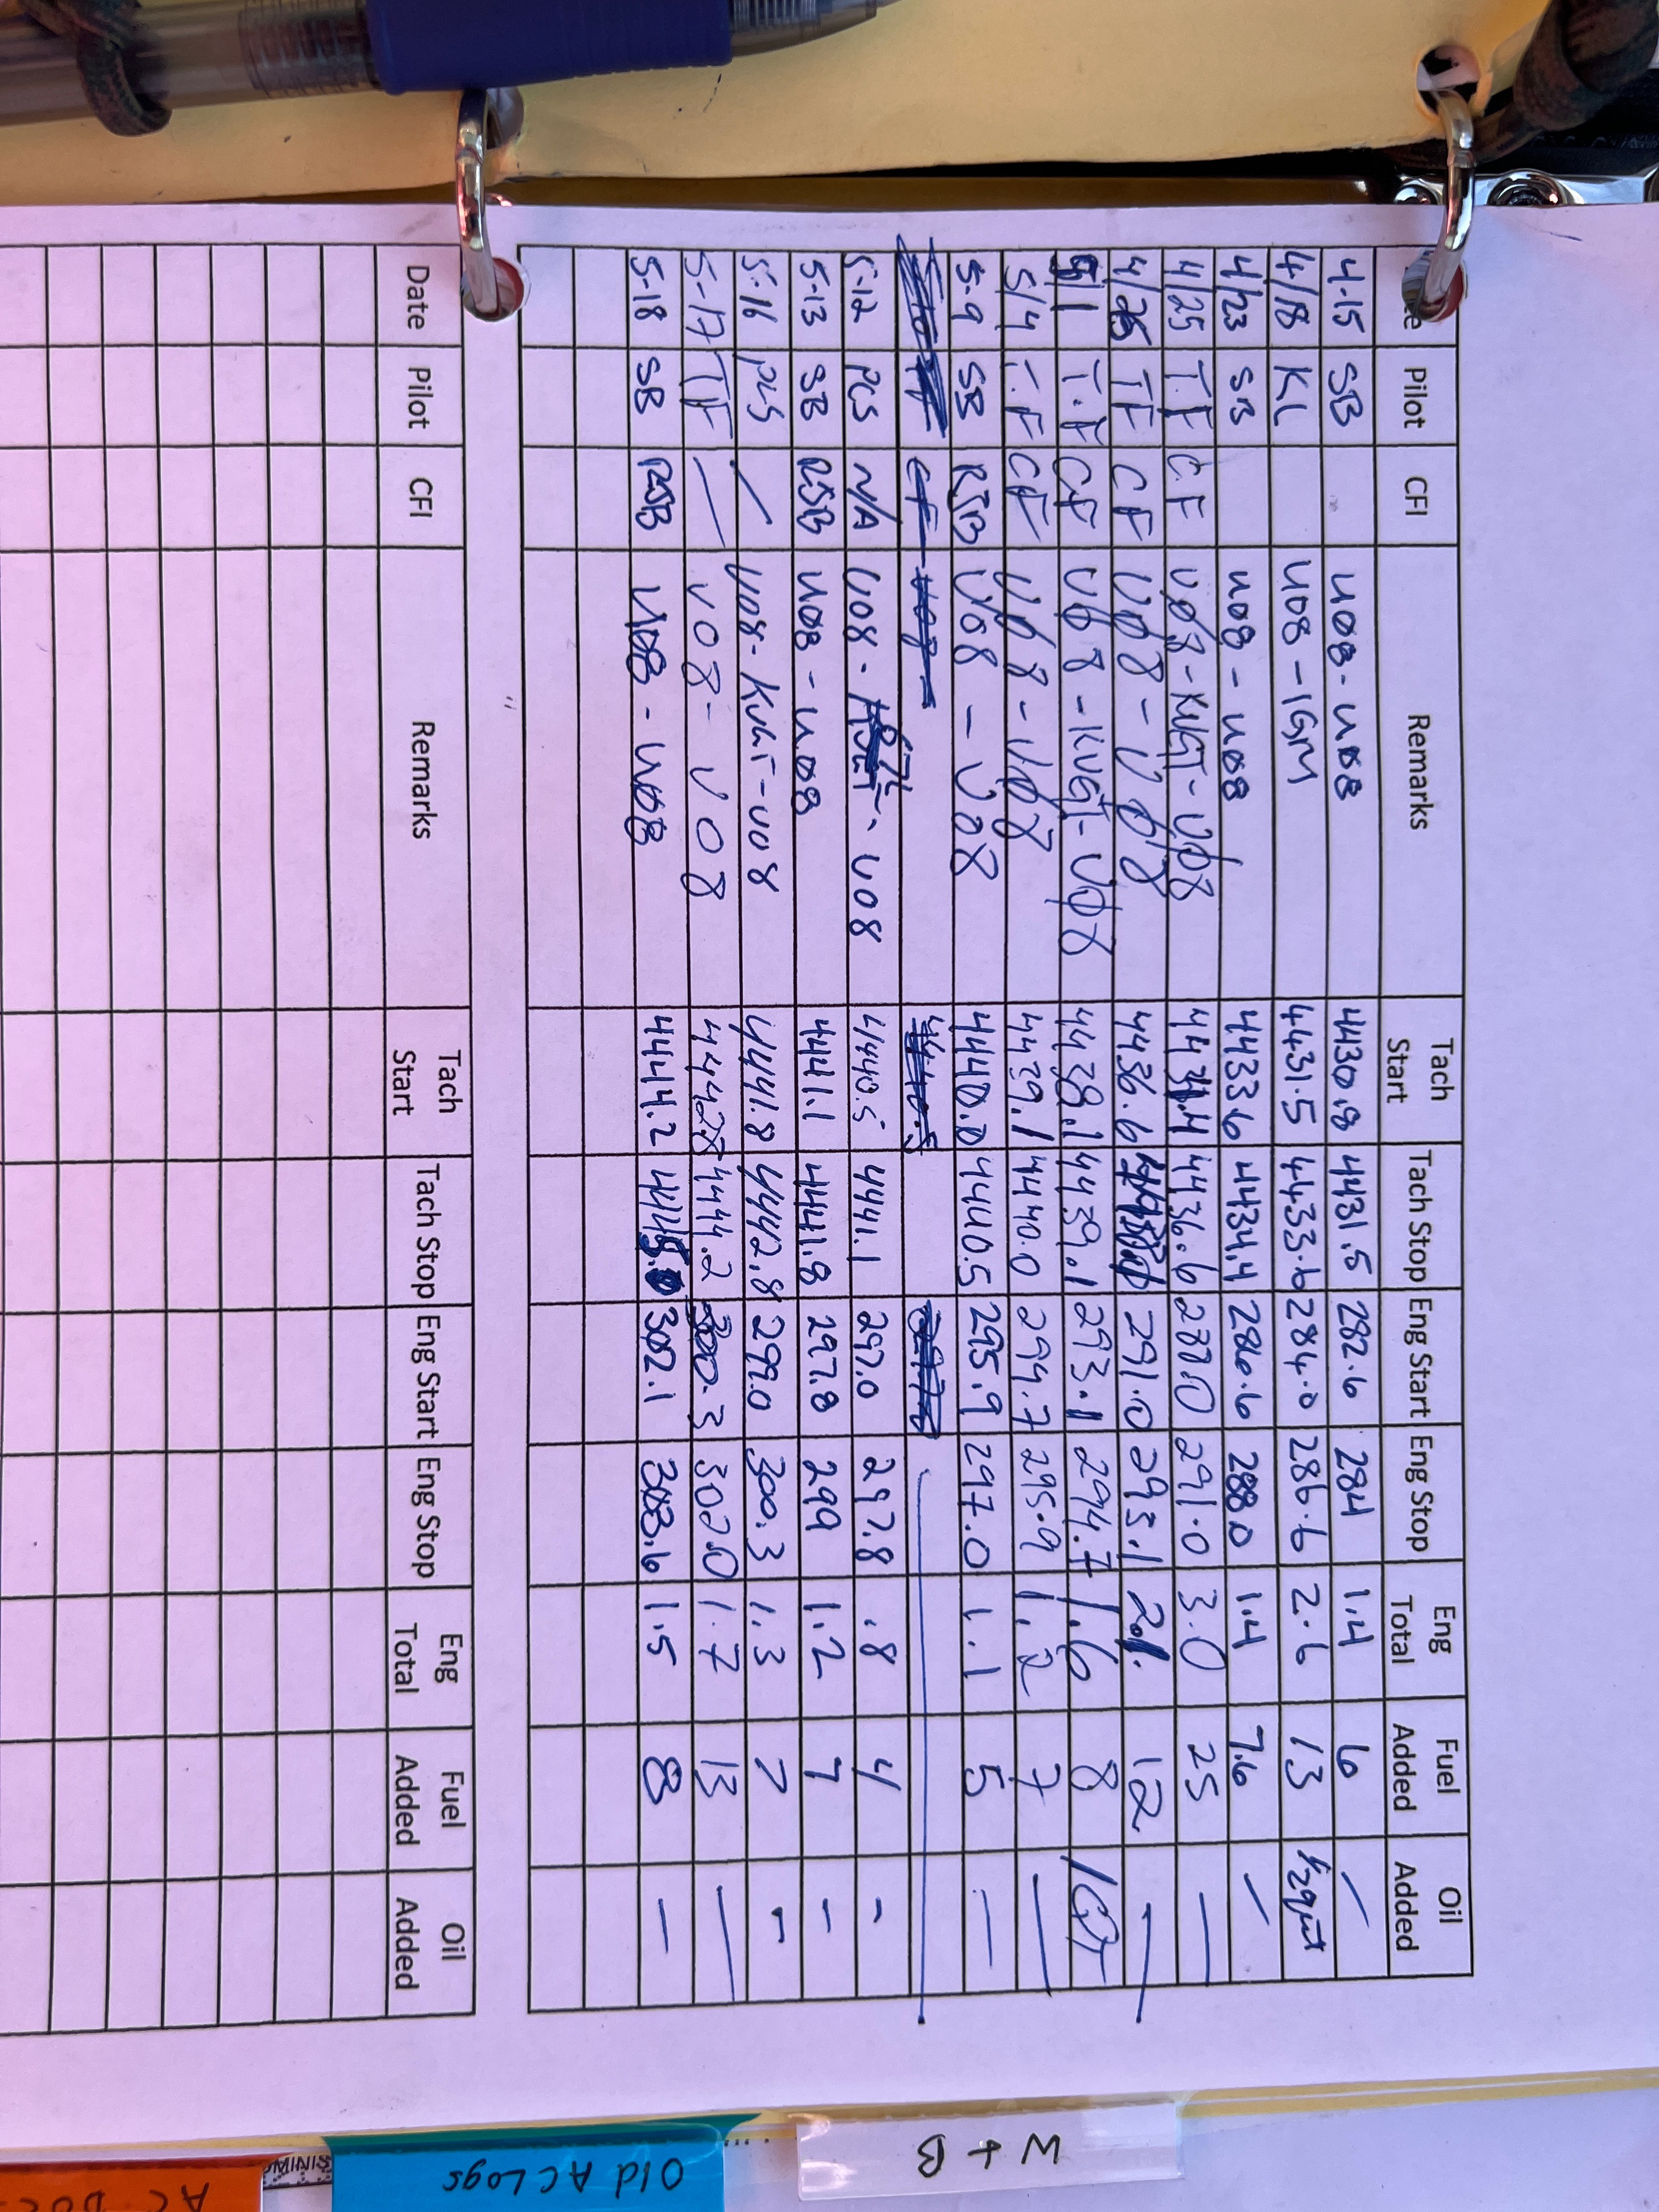 Date Pilot CFI Remarks Tach Start Tach Stop Eng Start Eng Stop Eng Total Fuel Added Oil Added
4-15 SB U08-U08 4430.8 4431.5 282.6 284 1.4 6 —
4/18 KL U08-1GM 4431.5 4433.6 284.0 286.6 2.6 13 1/2 quart
4/23 SB U08-U08 4433.6 4434.4 286.6 288.0 1.4 7.6 —
4/25 T.F C.F UØ8-KVGT-UØ8 4434.4 4436.6 288.0 291.0 3.0 25 —
4/26 TF CF UØ8-UØ8 4436.6 291.0 293.1 2.1 12 —
5/1 T.F CF UØ8-KVGT-UØ8 4438.1 4439.1 293.1 294.7 1.6 8 1QT
5/4 T.F CF UØ8-UØ8 4439.1 4440.0 294.7 295.9 1.2 7 —
5-9 SB RSB U08-U08 4440.0 4440.5 295.9 297.0 1.1 5 —
5-12 PCS N/A U08-67L-U08 4440.5 4441.1 297.0 297.8 .8 4 -
5-13 SB RSB U08-U08 4441.1 4441.8 297.8 299 1.2 7 -
5-16 PCS / U08-KVGT-U08 4441.8 4442.8 299.0 300.3 1.3 7 -
5-17 TF — U08-U08 4442.8 4444.2 300.3 302.0 1.7 13 —
5-18 SB RSB U08-U08 4444.2 4445.0 302.1 303.6 1.5 8 —
Date Pilot CFI Remarks Tach Start Tach Stop Eng Start Eng Stop Eng Total Fuel Added Oil Added
W + B
Old AC Logs
AC DOC